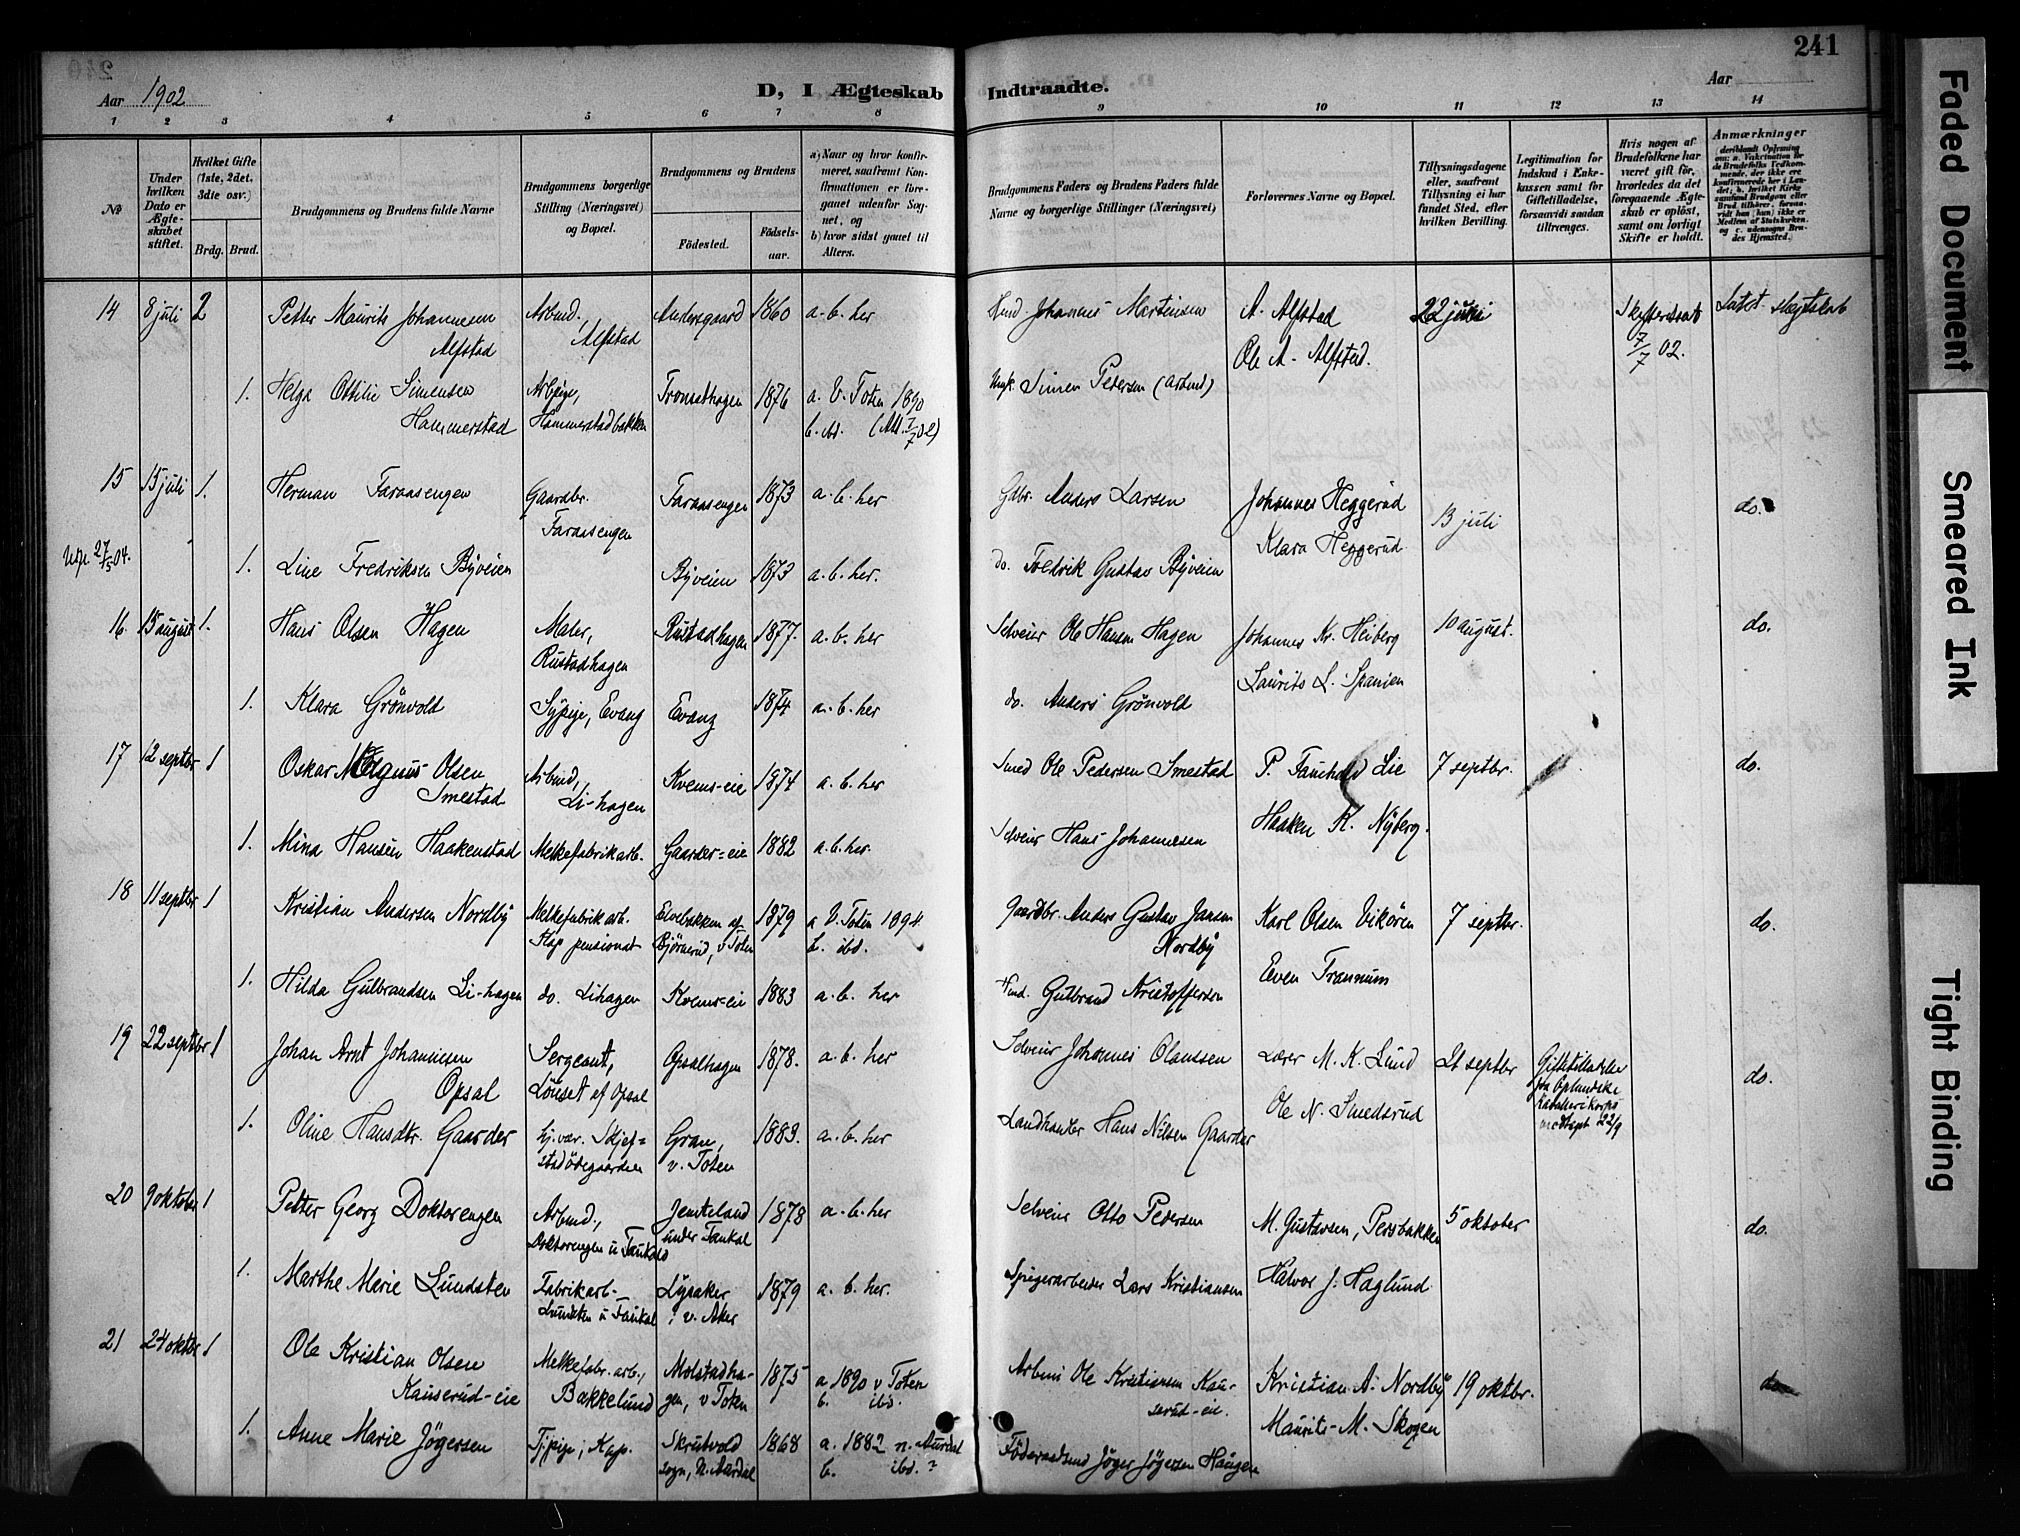 240
Aar 1902
D, I Ægteskab
Indtraadte.
Aar
241
1 2 3 4 5 6 7 8 9 10 11 12 13 14
№
Under hvilken Dato er Ægteskabet stiftet.
Hvilket Gifte (1ste, 2det. 3die osv.)
Brdg. Brud.
Brudgommens og Brudens fulde Navne
Brudgommens borgerlige Stilling (Næringsvei) og Bopæl.
Brudgommens og Brudens
Födested.
Födselsaar.
a) Naar og hvor konfirmeret, saafremt Konfirmationen er foregaaet udenfor Sognet, og
b) hvor sidst gaaet til Alters.
Brudgommens Faders og Brudens Faders fulde Navne og borgerlige Stillinger (Næringsvei)
Forlovernes Navne og Bopæl.
Tillysningsdagene eller, saafremt Tillysning ei har fundet Sted, efter hvilken Bevilling.
Legitimation for Indskud i Enkekassen samt for Giftetilladelse, forsaavidt saadan tiltrænges.
Hvis nogen af Brudefolkene har været gift för, hvorledes da det foregaaende Ægteskab er oplöst, samt om lovligt Skifte er holdt.
Anmærkninger
14 8 juli 2 Petter Maurits Johannesen Alfstad Arbmd., Alfstad Andersgaard 1860 a.b. her Johannes Mortensen A. Alfstad 22 juni Skifteattest 7/7 02.
Ole A. Alfstad.
1. Helga Ottilie Simensen Hammerstad Arbpige, Hammerstadbakken 1876 a. V. Toten 1890 b. ibd. Simen Pedersen (Arbmd)
15 15 juli 1. Herman Faraasengen Gaardbr. Faraasengen Faraasengen 1873 a.b. her Gdbr. Anders Larsen Johannes Heggerud 13 juli do.
Klara Heggerud
27/5 04. 1. Line Fredriksen Byveien Byveien 1873 a.b. her. do. Fredrik Gustav Byveien
16 15 august 1. Hans Olsen Hagen Maler, Rustadhagen Rustadhagen 1877. a.b. her Selveier Ole Hansen Hagen Johannes Kr. Heiberg 10 august. do.
Laurits L. Spanien
1. Klara Grönvold Sypige, Evang Evang 1874 a.b. her do. Anders Grönvold
17 12 septbr 1 Oskar Magnus Olsen Smestad Arbmd., Li-hagen Kvems-eie 1874 a.b. her Smed Ole Pedersen Smestad P. Fauchald Lie 7 septbr. do.
Haaken K. Nyberg.
1. Mina Hansen Haakenstad Melkefabrikarb. Gaarder-eie 1882 a.b. her. Selveier Hans Johannesen
18 11 septbr 1 Kristian Andersen Nordby Melkefabrikarb. Kap pensionat Björnerud, v Toten 1879 a V. Toten 1894. b. ibd. Gaardbr. Anders Gustav Jansen Nordby Karl Olsen Vikören 7 septbr. do.
Even Trannum
1. Hilda Gulbrandsen Li-hagen do. Lihagen Kvems-eie 1883 a.b. her Gulbrand Kristoffersen
19 22 septbr 1 Johan Arnt Johannesen Opsal Sergeant, Löuset af Opsal Opsalhagen 1878. a.b. her Selveier Johannes Olaussen Lærer M. K. Lund 21 septbr Giftetilladelse fra Oplandske Kavallerikorps 22/9 do.
Ole N. Smedsrud
1. Oline Hansdtr. Gaarder Skjefstadödegaarden Gran, v. Toten 1883. a.b. her Landhandler Hans Nilsen Gaarder
20 9 oktober 1 Petter Georg Doktorengen Arbmd., Doktorengen u Faukal Jemteland under Faukal 1878 a.b. her Selveier Otto Pedersen M. Gustavsen, Persbakken 5 oktober do.
Halvor J. Haglund
1. Marthe Marie Lundsten Fabrikarb. Lundsten u Faukal Lysaker i v. Aker 1879 a.b. her. Spigerarbeider Lars Kristiansen
21 24 oktbr 1 Ole Kristian Olsen Kauserud-eie Melkefabr.arb., Bakkelund Molstadhagen, v Toten 1875 a. 1890 v Toten b. ibd. Ole Kristiansen Kauserud-eie. Kristian A. Nordby 19 oktbr. do
Maurits M. Skogen
1. Anne Marie Jögersen Tjpige, Kap. Skrutvold sogn, N. Aurdal 1868 a. 1882 n. Aurdal b. ibd. ? Föderaadsmd Jöger Jögersen Haugen
Faded Document
Smeared Ink
Tight Binding